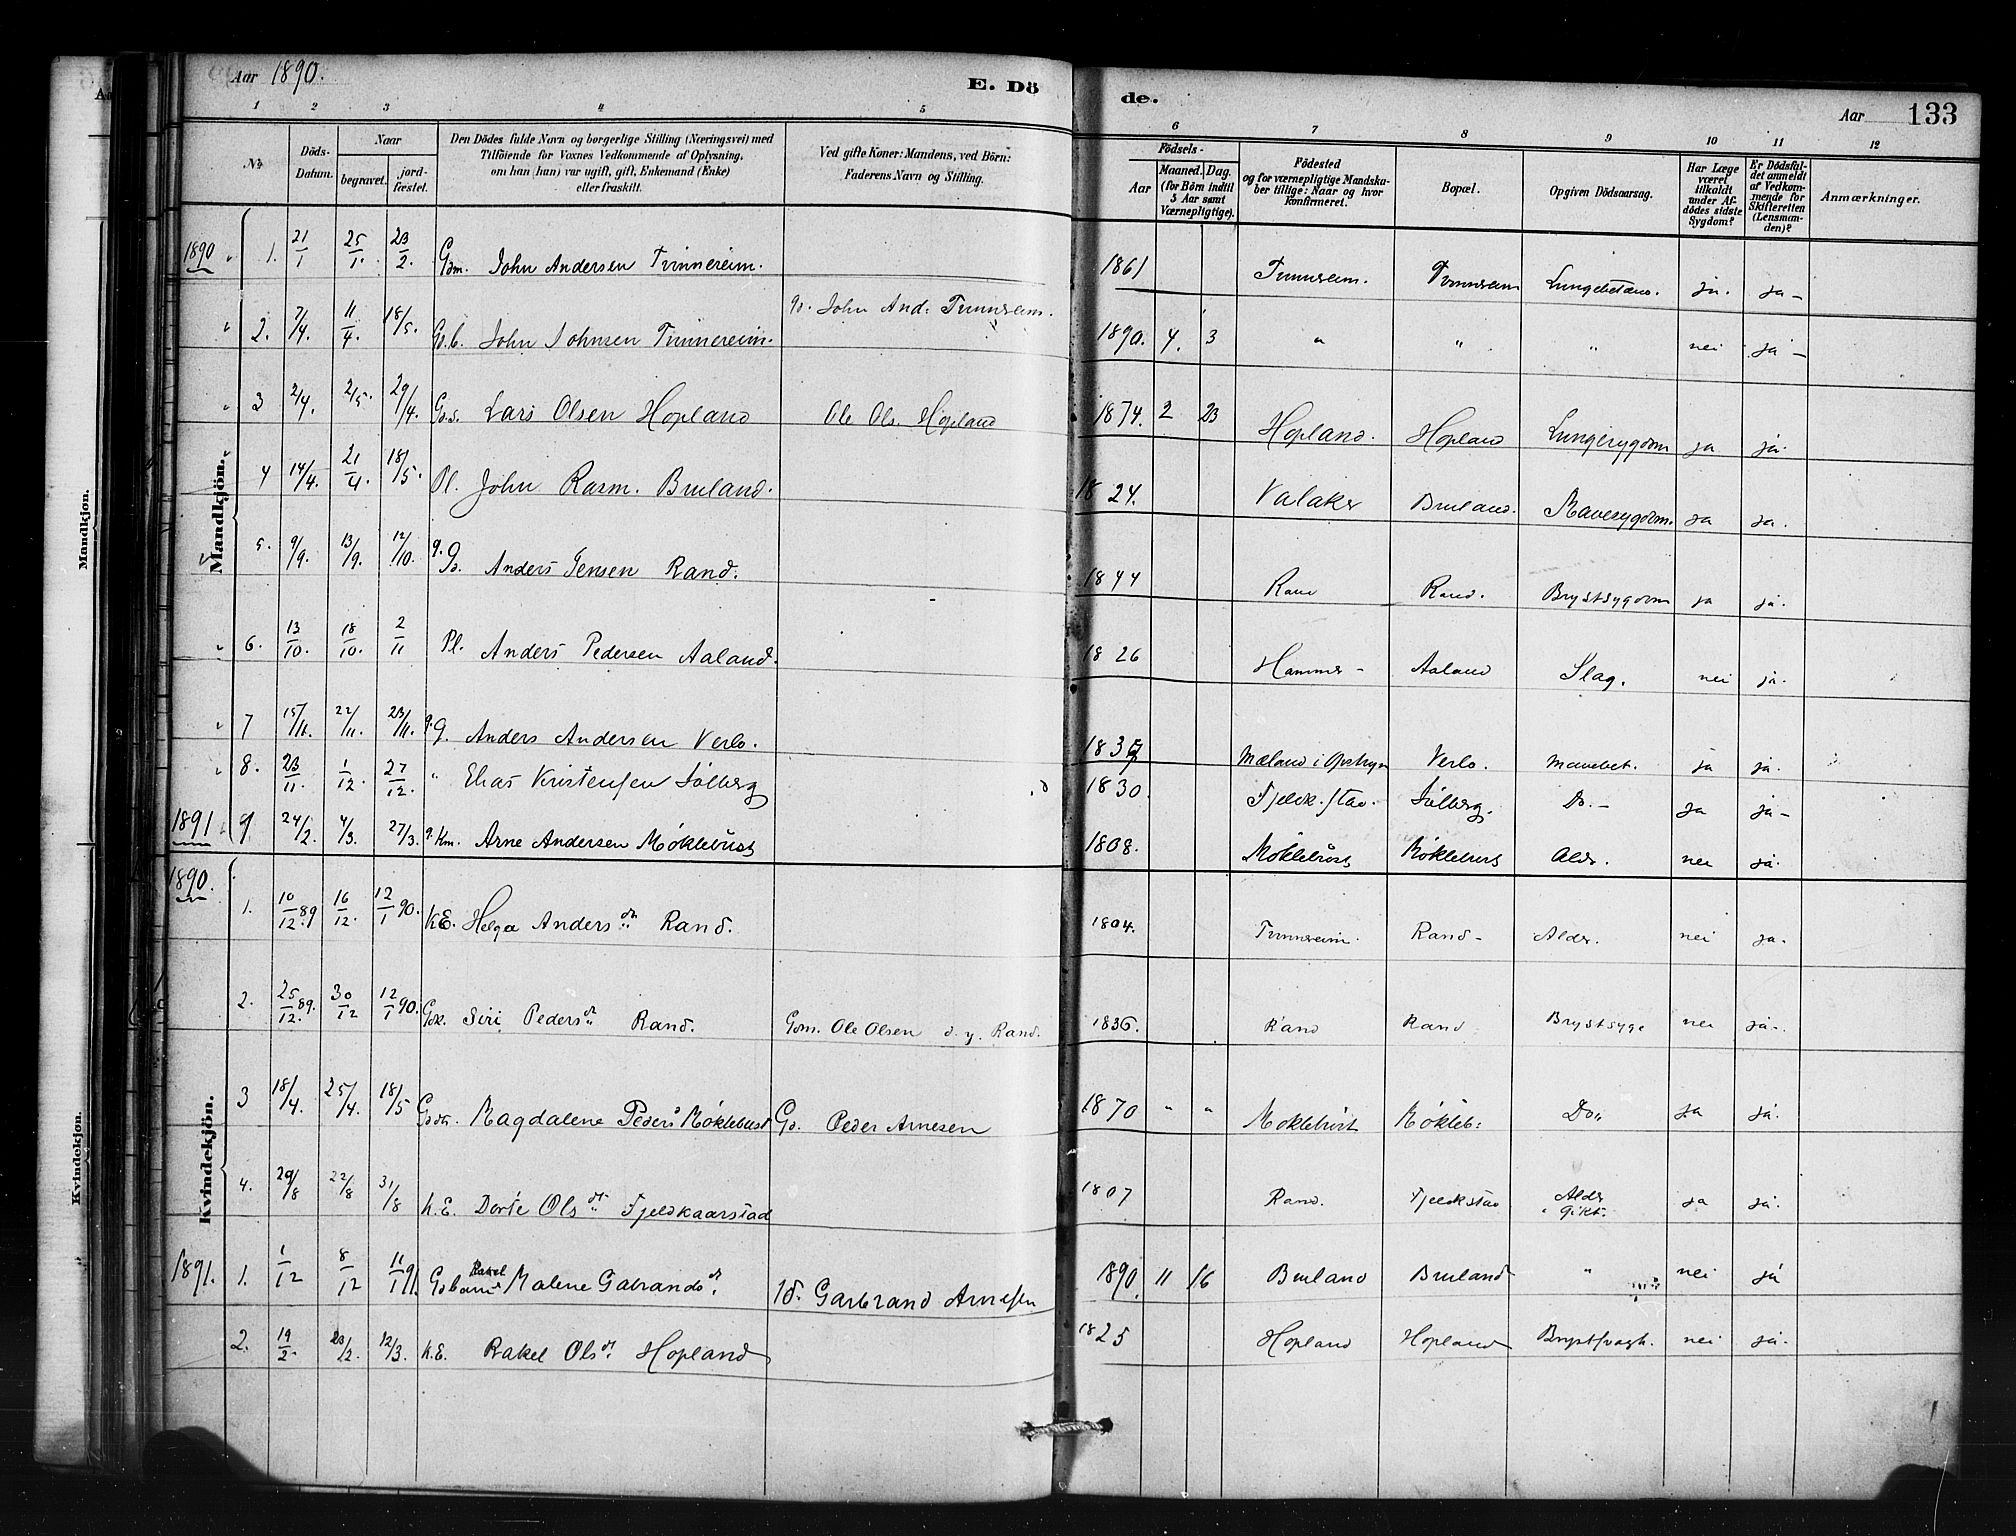 Aar 1890. E. Dö de. Aar 133
1 2 3 4 5 6 7 8 9 10 11 12
No. Döds-Datum. Naar begravet. jord-fæstet. Den Dödes fulde Navn og borgerlige Stilling (Næringsvei) med Tilföiende for Voxnes Vedkommende af Oplysning, om han (hun) var ugift, gift, Enkemand (Enke) eller fraskilt. Ved gifte Koner: Mandens, ved Börn: Faderens Navn og Stilling. Födsels- Aar Maaned. Dag. (for Börn indtil 5 Aar samt Værnepligtige). Födested og for værnepligtige Mandskaber tillige: Naar og hvor konfirmeret. Bopæl. Opgiven Dödsaarsag. Har Læge været tilkaldt under Afdödes sidste Sygdom? Er Dödsfaldet anmeldt af Vedkommende for Skifteretten (Lensmanden)? Anmærkninger.
Mandkjön.
1890 1. 21/1 25/1. 23/2. Gbm. John Andersen Tvinnereim. 1861 Tvinnreim. Tvinnreim Lungebetæn. ja. ja-
2. 7/4. 11/4. 18/5. G.b. John Johnsen Tvinnereim. G. John And: Tvinnreim. 1890. 4. 3 " " " nei ja-
3 2/4. 2/5. 29/4. Gs. Lars Olsen Hopland Ole Ols. Hopland 1874. 2 23 Hopland. Hopland Lungesygdom ja ja.
4 14/4. 21/4. 18/5. Pl. John Rasm. Bruland. 1824. Valaker Bruland. Mavesygdom. ja ja.
5. 9/9. 13/9. 12/10. g. G. Anders Jensen Rand. 1844 Rand Rand. Brystsygdom ja ja.
6. 13/10. 18/10. 2/11 Pl. Anders Pedersen Aaland. 1826 Hammer- Aaland Slag. nei ja.
7 15/11. 22/11. 23/11. g. G. Anders Andersen Verlo. Mæland i Opstryn Verlo. Mavebet. ja ja.
8. 23/11. 1/12. 27/12. " Elias Kristensen Sølberg 1830. Fjeldk.stad. Sølberg. Do.- ja ja-
1891 9. 24/2. 4/3. 27/3. g. Km. Arne Andersen Møklebust 1808. Møklebust Møklebust Alder. nei ja.
1890.
Kvindekjön.
1. 10/12.89 16/12. 12/1 90. k.E. Helga Andersdr Rand. 1804. Tvinnreim. Rand- Alder. nei ja.
2. 25/12.89. 30/12 12/1 90. Gbk. Siri Pedersdr Rand. Gbm. Ole Olsen d. y. Rand. 1836. Rand Rand Brystsyge nei ja..
3 18/4. 25/4. 18/5 Gdtr. Magdalene Peders Møklebust G. Peder Arnesen 1870 " " Møklebust Mökleb: Do " ja ja.
4. 29/8 22/8 31/8 k.E. Dorte Olsdr Fjeldkaarstad 1807 Rand. Fjeldkstad Alder Gikt. ja ja.
1891. 1. 1/12 8/12 11/1 91. Gbbarn Rakel Malene Gabrandsdr. Garbrand Arnesen 1890. 11 16 Bruland Bruland " nei ja
2. 19/2. 23/2. 12/3. k.E. Rakel Olsdr. Hopland 1825 Hopland Hopland Brystsvagh. nei ja.
Mandkjön.
Kvindekjön.